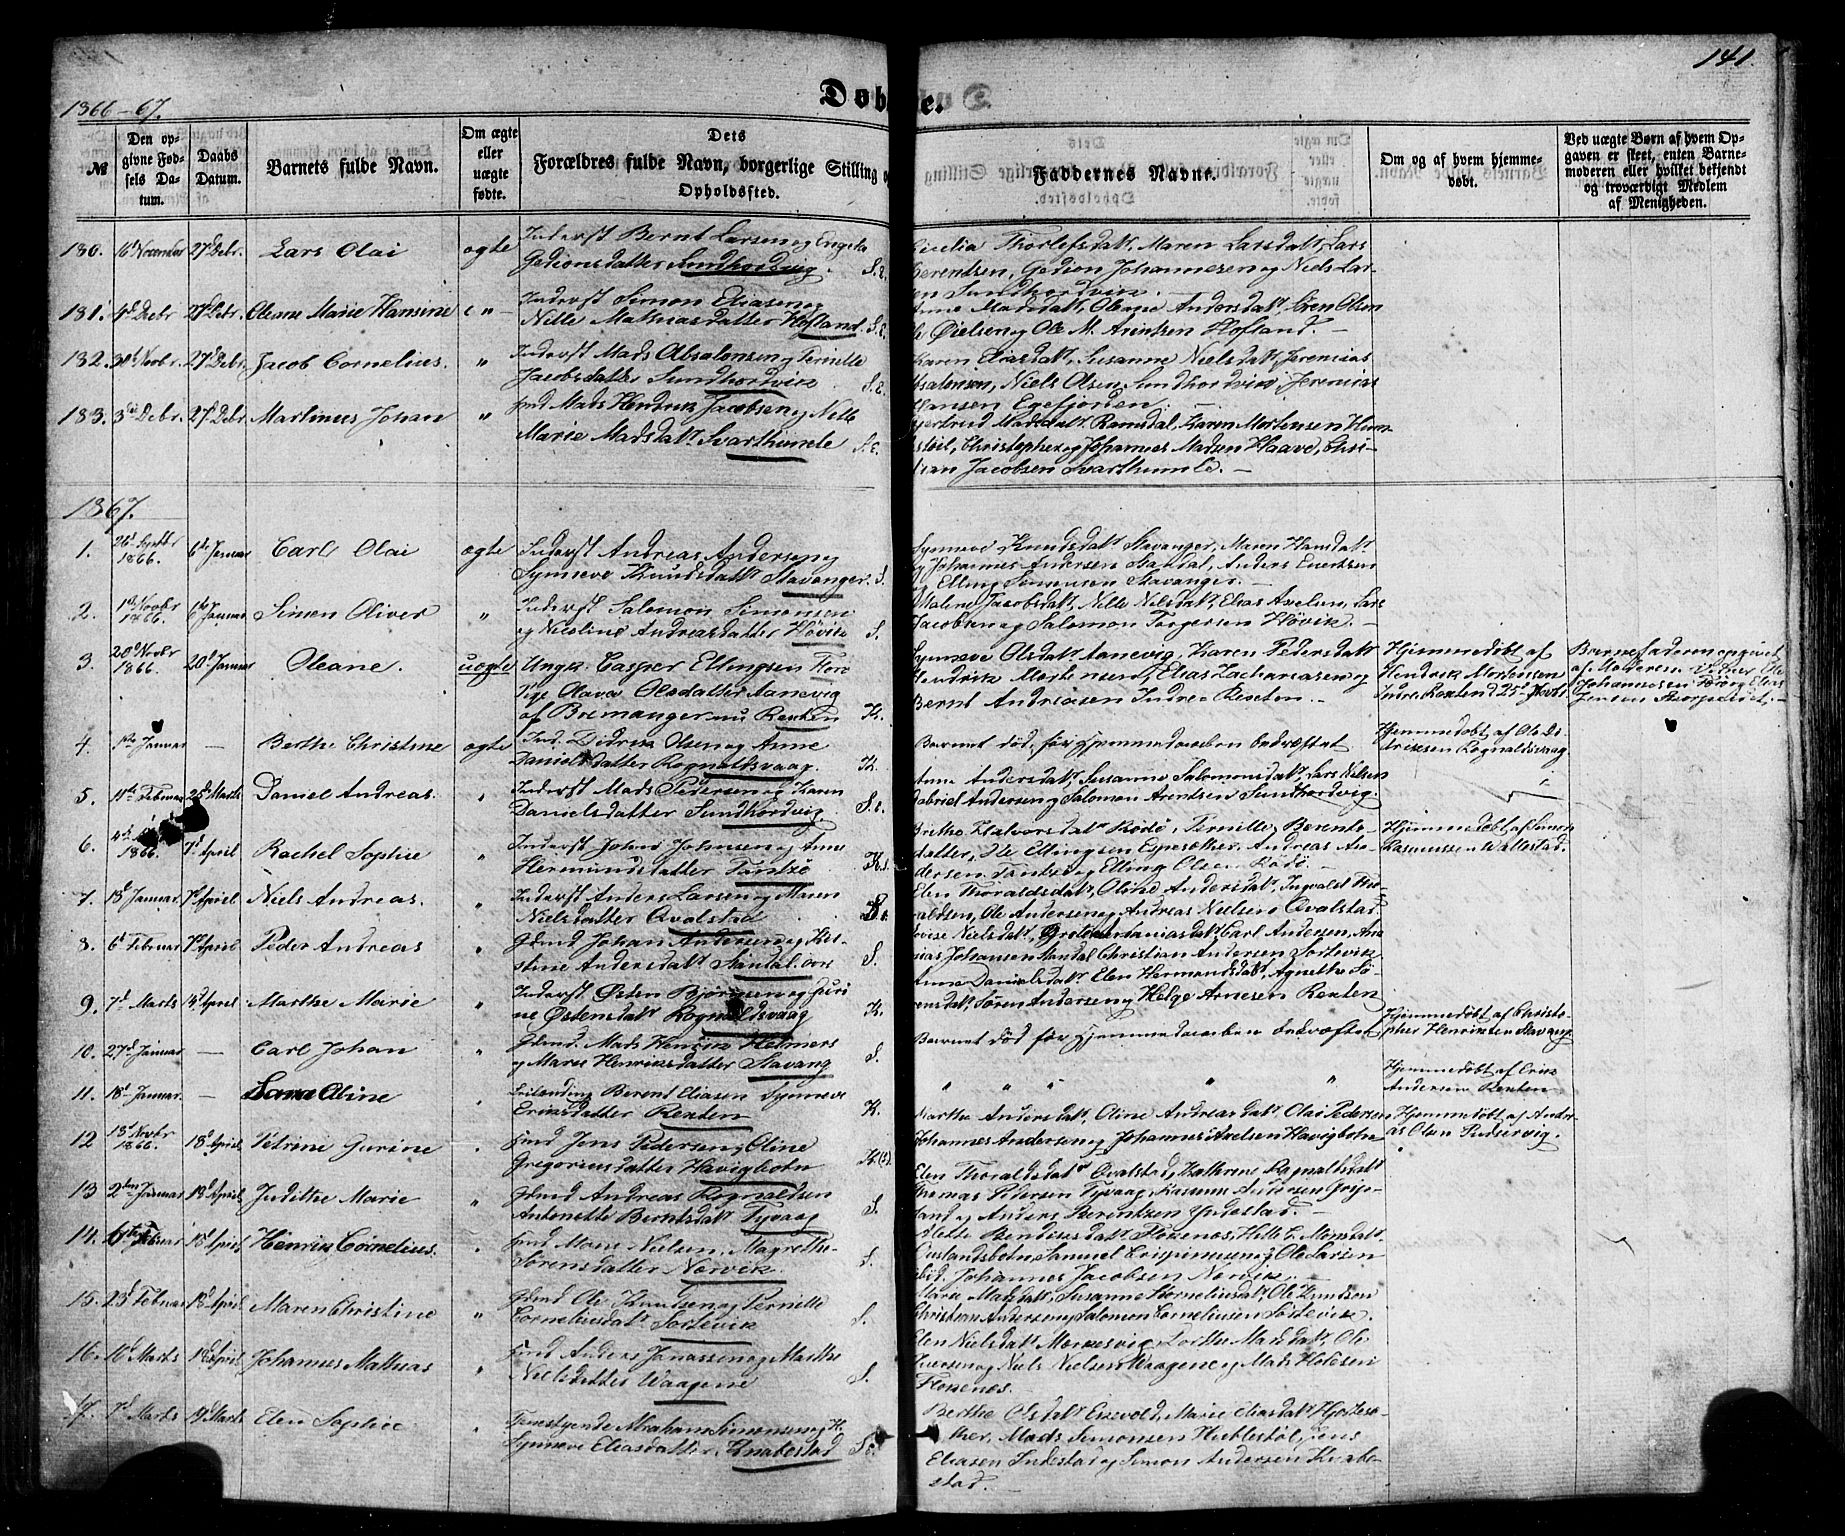 141.
1866-67.
Døbte.
№
Den opgivne Fødsels Datum.
Daabs Datum.
Barnets fulde Navn.
Om ægte eller uægte fødte.
Dets Forældres fulde Navn, borgerlige Stilling o Opholdssted.
Faddernes Navne.
Om og af hvem hjemmedøbt.
Ved uægte Børn af hvem Opgaven er skeet, enten Barnemoderen eller hvilket bekjendt og troværdigt Medlem af Menigheden.
180. 16d November 27d Debr. Lars Olai ægte Inderst Bernt Larsen og Engela
Gedionsdatter Sundhordvig. S.E.
Cicelia Thorlefsdatr, Maren Larsdatr, Lars
Berentsen, Gedion Johannesen og Niels Lar-
sen Sundhordvik.
181. 4d Debr 27d Debr. Oleane Marie Hansine Inderst Simon Eliasen og
Nille Mathiasdatter Hofland. S.E.
Madsdatr, Olene Andersdatr, Søren Olsen
Øielsen og Ole M. Arentsen Hofland.
182. 30d Novbr. 27d Debr. Jacob Cornelius. " Inderst Mads Absalonsen og Pernille
Jacobsdatter Sundhordvik S.E.
Karen Eliasdatr, Susanne Nielsdatr, Jeremias
Absalonsen, Niels Olsen Sundhordvik Jeremias
Hansen Egefjorden.
183. 3die Debr. 27d Debr. Martinus Johan " Hmd Mads Hendrik Jacobsen og Nille
Marie Madsdatr Svarthumle S.E.
Gjertrud Madsdatr Ramsdal, Karen Mortensen Hum-
støil, Christopher og Johannes Madsen Haave, Chri-
stian Jacobsen Svarthumle.
1867.
1. 26d Septbr 1866. 6te Januar Carl Olai ægte Inderst Andreas Andersen og
Synneve Knudsdatr Stavanger. S.
Synneve Knudsdatr Stavanger, Maren Hansdatr
og Johannes Andersen Standal, Anders Evertsen
og Elling Simonsen Stavanger.
2. 1ste Novbr 1866. 6te Januar Simon Oliver " Inderst Salomon Simonsen
og Nicoline Andreasdatter Høvik S.
Malene Jacobsdatr, Nille Nilsdatr, Elias Axelsen, Lars
Jacobsen og Salomon Torgersen Høvik.
3. 20d Novbr 1866. 20d Januar Oleane. uægte Ungk. Casper Ellingsen Færø
Pige Olava Olsdatter Aanevig
af Bremanger nu Rexten K.
Synneve Olsdatr Aanevig, Karen Pedersdatr
Hendrik Mortensen, Elias Zachariasen og
Bernt Andreasen Indre Rexten.
Hjemmedøbt af
Hendrik Mortensen
Indre Rexten d. 25d Novbr.
Barnefaderen opgivet
af Moderen
4. 1ste Januar — Berthe Christine ægte Ind. Didrik Olsen og Anne
Danielsdatter Rognaldsvaag. K.
Barnet død, før Hjemmedaaben bekræftet
Hjemmedøbt af Ole Di-
driksen Rognaldsvaag
5. 11te Februar 25d Marts Daniel Andreas. " Inderst Mads Pedersen og Karen
Danielsdatter Sundhordvig S.E.
Anne Andersdatr, Susanne Salomonsdatr, Lars Nielsen
Gabriel Andersen og Salomon Arentsen Sundhordvig.
6. 1866. 7d April Rachel Sophie " Inderst Johns Johnsen og Anne
Hermundsdatter Tansø K.
Brithe Halvorsdatr Rødø, Pernille Berents-
datter, Ole Ellingsen Andreas An-
dersen Tansø og Elling Olsen Rødø.
Hjemmedøbt af Simon
Rasmussen Vallestad.
7. 15d Januar. 7d April Niels Andreas. " Inderst Anders Larsen og Maren
Nielsdatter Qvalstad
Elen Thoraldsdatr, Oline Andersdatr, Ingvald Tho-
raldsen, Ole Andersen og Andreas Nielsen Qvalstad.
8. 6d Februar 7d April Peder Andreas " Gbmd Johan Andersen og Kri-
stine Andersdatr Standal. S.
Lovise Nielsdatr, Carl Andersen, Ana-
nias Johansen Standal Christian Andersen Sørtevik
9. 7d Marts 18d April Marthe Marie " Inderst Østen Bjørnsen og Juri
ne Østensdatr Rognaldsvaag K.
Anne Danielsdatr Elen Hermandsdatr, Agnethe Sø-
rensdatr Søren Andersen og Helge Arnesen Rexten
10. 27d Januar — Carl Johan " Gbmd. Mads Henrik Helmers
og Marie Henriksdatter Stavang S.
Barnet død før Hjemmedaaben bekræftet
Hjemmedøbt af Christo-
pher Henriksen Stavang
11. 18d Januar. — Oline " Berent Eliasen Synneve
Eriksdatter Rexten K.
" " " " "
Hjemmedøbt af Erik
Andersen Rexten
12 18d Novbr 1866. 18d April Petrine Gurine " Hmd Jens Pedersen og Oline
Gregoriusdatter Havigbotn K.(S.)
Marthe Andersdatr, Oline Andreasdatr Olai Pedersen
Johannes Andersen og Johannes Axelsen Havigbotn
Hjemmedøbt af Andre-
as Olsen
13 2den Januar 18d April Judithe Marie " Gbmd Andreas Rognaldsen
Antonette Berntsdatr Tyvaag S.
Elen Thoraldsdatr Qvalstad, Kathrine Rognaldsdatr
Thomas Pedersen Tyvaag, Rasmus Andersen Grip-
land og Anders Berentsen Yndestad.
14. 6te Februar 18d April Henrik Cornelius. " Hmd Mons Nielsen, Magrethe
Sørensdatter Norvik. S.
Bendixsdatr Florenæs, Hille E. Monsdatr
Samuel Crispinusen og Ole Larsen
Johannes Jacobsen Norvik.
15. 23d Februar 18d April Maren Christine " Gbmd Ole Knudsen og Pernille
Corneliusdatr Sørtevik S.
Marie Madsdatr, Susanne Korneliusdatr Ole Knudsen
Christian Andersen og Salomon Corneliusen Sørtevik.
16. 16d Marts 18d April Johannes Mathias " Hmd Anders Janassen og Marthe
Nielsdatter Waagene S.
Elen Nielsdatr Morkesvig, Dorthe Madsdatr, Ole
Iversen og Niels Nielsen Waagene og Mads Holesen
Florenæs.
17. 7d Marts 19d Marts Elen Sophie " Tjenestgjende Abraham Simonsen og H.
Synneve Eliasdatter Knabestad
Berthe Olsdatr Eikevold, Marie Eliasdatr
Mads Simonsen Hublestøl, Jens
Eliasen Indestad og Simon Andersen Knabe-
stad.